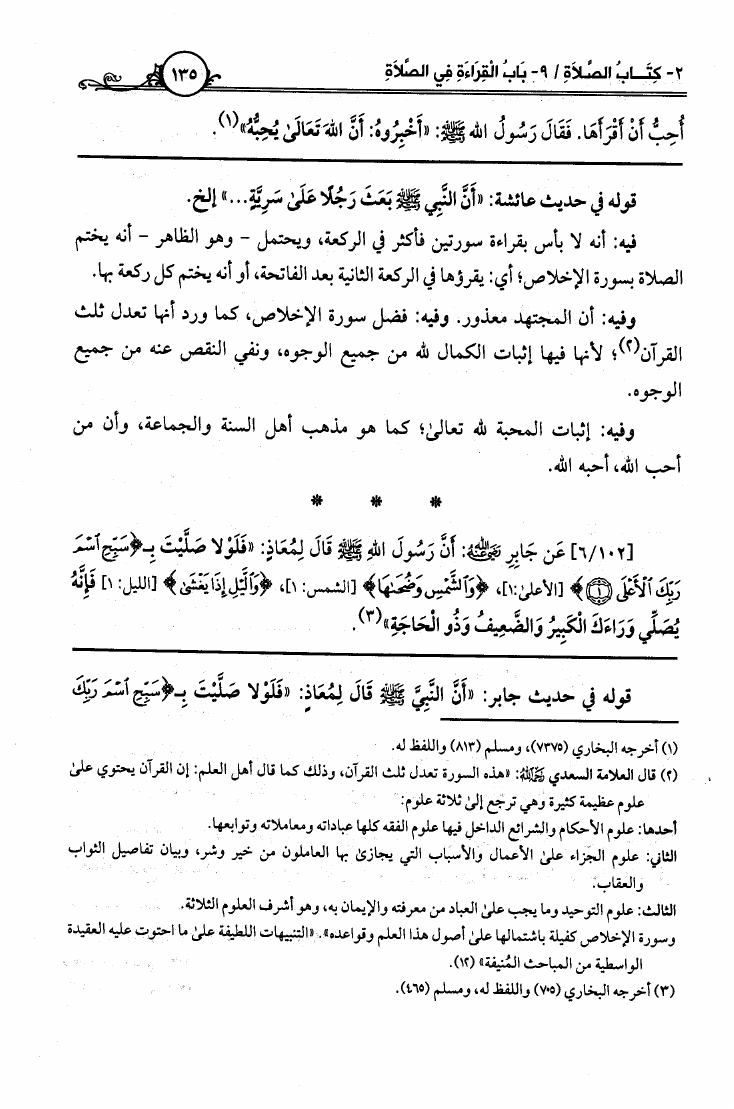 ٢- كِتَابُ الصَّلَاةِ / ٩- بَابُ الْقِرَاءَةِ فِي الصَّلَاةِ
١٣٥
أُحِبُّ أَنْ أَقْرَأَهَا. فَقَالَ رَسُولُ اللهِ ﷺ: «أَخْبِرُوهُ: أَنَّ اللهَ تَعَالَىٰ يُحِبُّهُ»(١).
قوله في حديث عائشة: «أَنَّ النَّبِي ﷺ بَعَثَ رَجُلًا عَلَىٰ سَرِيَّةٍ...» إلخ.
فيه: أنه لا بأس بقراءة سورتين فأكثر في الركعة، ويحتمل – وهو الظاهر – أنه يختم
الصلاة بسورة الإخلاص؛ أي: يقرؤها في الركعة الثانية بعد الفاتحة، أو أنه يختم كل ركعة بها.
وفيه: أن المجتهد معذور. وفيه: فضل سورة الإخلاص، كما ورد أنها تعدل ثلث
القرآن(٢)؛ لأنها فيها إثبات الكمال لله من جميع الوجوه، ونفي النقص عنه من جميع
الوجوه.
وفيه: إثبات المحبة لله تعالىٰ؛ كما هو مذهب أهل السنة والجماعة، وأن من
أحب الله، أحبه الله.
* * *
[٦/١٠٢] عَن جَابِرٍ رَضِيَ اللَّهُ عَنْهُ: أَنَّ رَسُولَ اللهِ ﷺ قَالَ لِمُعَاذٍ: «فَلَوْلَا صَلَّيْتَ بِـ﴿سَبِّحِ اسْمَ
رَبِّكَ الْأَعْلَى ۝١﴾ [الأعلىٰ:١]، ﴿وَالشَّمْسِ وَضُحَاهَا﴾ [الشمس: ١]، ﴿وَاللَّيْلِ إِذَا يَغْشَىٰ﴾ [الليل: ١] فَإِنَّهُ
يُصَلِّي وَرَاءَكَ الْكَبِيرُ وَالضَّعِيفُ وَذُو الْحَاجَةِ»(٣).
قوله في حديث جابر: «أَنَّ النَّبِيَّ ﷺ قَالَ لِمُعَاذٍ: «فَلَوْلَا صَلَّيْتَ بِـ﴿سَبِّحِ اسْمَ رَبِّكَ
(١) أخرجه البخاري (٧٣٧٥)، ومسلم (٨١٣) واللفظ له.
(٢) قال العلامة السعدي رَحِمَهُ اللَّهُ: «هذه السورة تعدل ثلث القرآن، وذلك كما قال أهل العلم: إن القرآن يحتوي علىٰ
علوم عظيمة كثيرة وهي ترجع إلىٰ ثلاثة علوم:
أحدها: علوم الأحكام والشرائع الداخل فيها علوم الفقه كلها عباداته ومعاملاته وتوابعها.
الثاني: علوم الجزاء علىٰ الأعمال والأسباب التي يجازىٰ بها العاملون من خير وشر، وبيان تفاصيل الثواب
والعقاب.
الثالث: علوم التوحيد وما يجب علىٰ العباد من معرفته والإيمان به، وهو أشرف العلوم الثلاثة.
وسورة الإخلاص كفيلة باشتمالها علىٰ أصول هذا العلم وقواعده». «التنبيهات اللطيفة علىٰ ما احتوت عليه العقيدة
الواسطية من المباحث المُنيفة» (١٢).
(٣) أخرجه البخاري (٧٠٥) واللفظ له، ومسلم (٤٦٥).